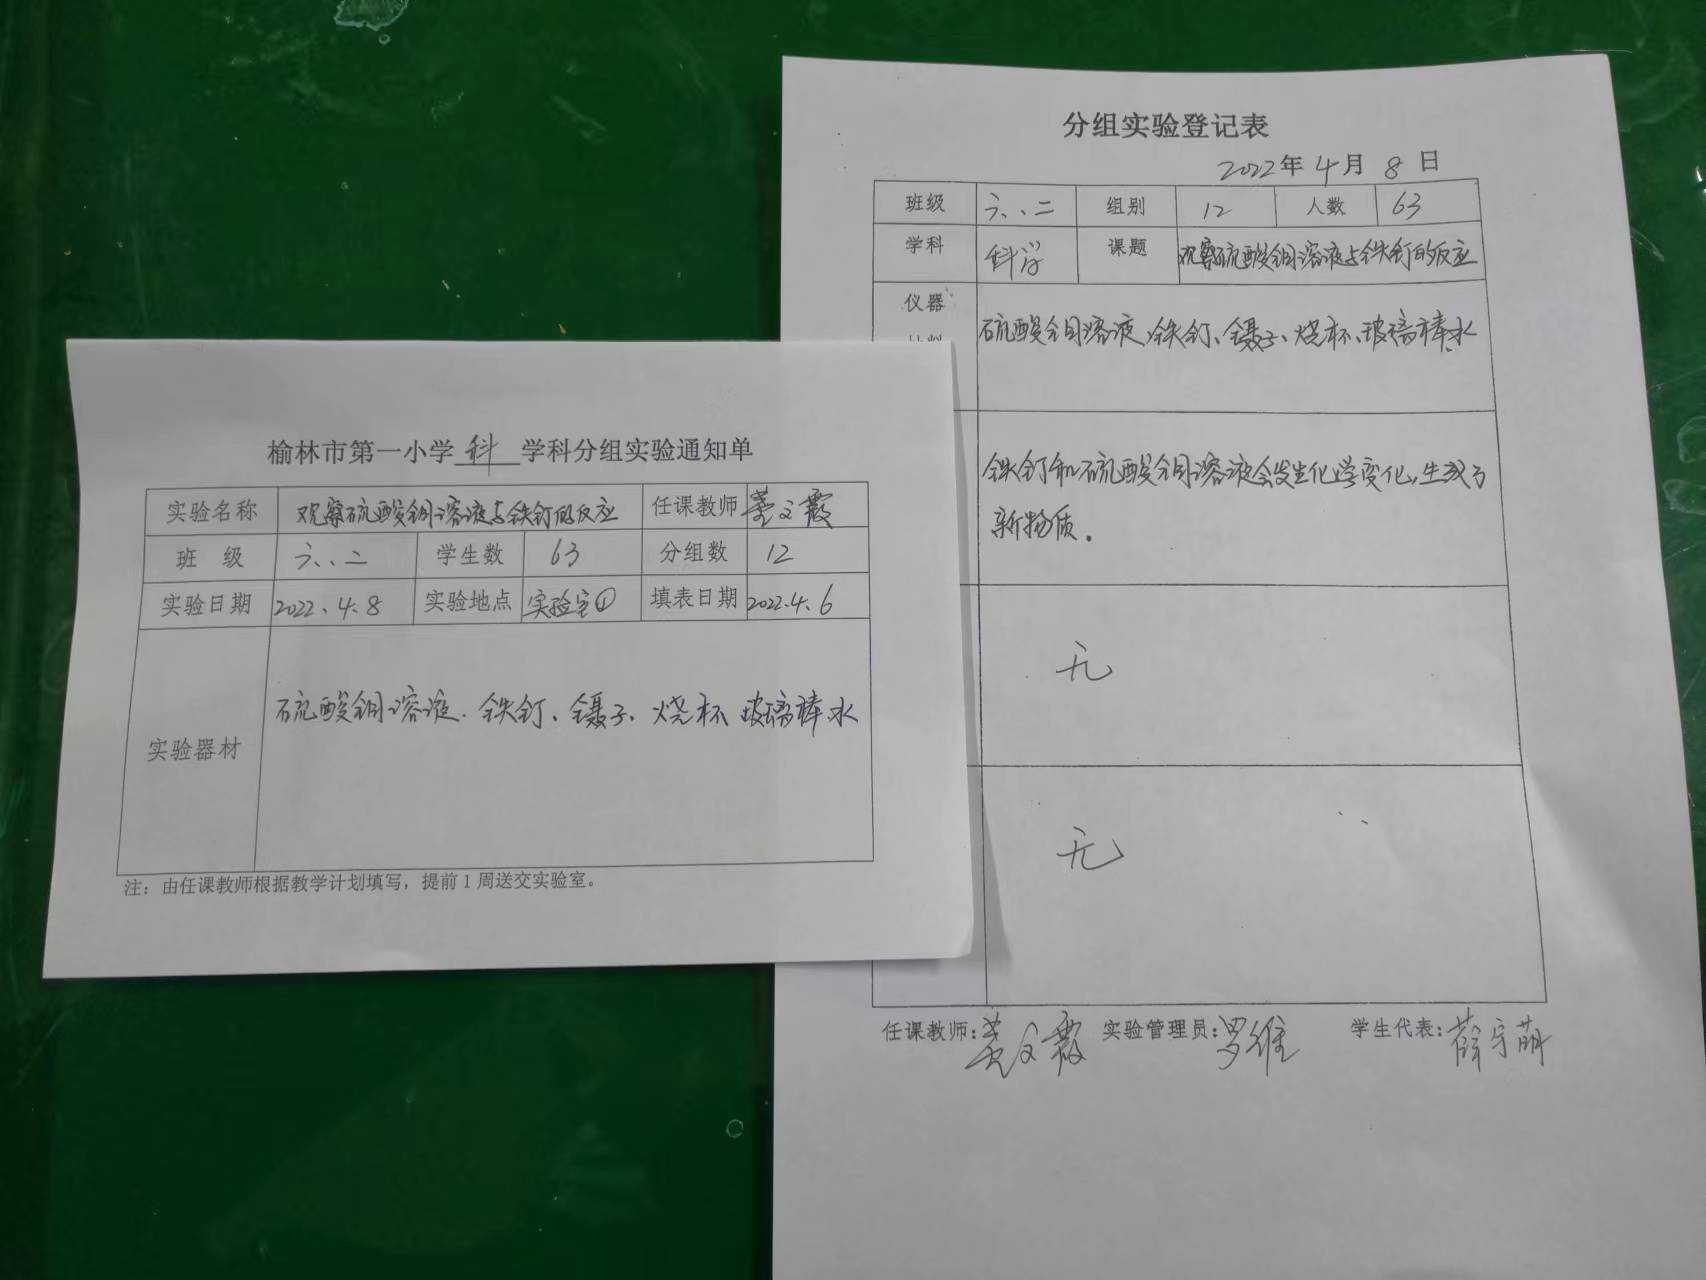 榆林市第一小学 科 学科分组实验通知单
实验名称 观察硫酸铜溶液与铁钉的反应 任课教师 姜文霞
班 级 六.二 学生数 63 分组数 12
实验日期 2022.4.8 实验地点 实验室① 填表日期 2022.4.6
实验器材 硫酸铜溶液、铁钉、镊子、烧杯、玻璃棒、水
注：由任课教师根据教学计划填写，提前1周送交实验室。
分组实验登记表
2022年 4月 8 日
班级 六.二 组别 12 人数 63
学科 科学 课题 观察硫酸铜溶液与铁钉的反应
仪器 硫酸铜溶液、铁钉、镊子、烧杯、玻璃棒、水
铁钉和硫酸铜溶液会发生化学变化，生成了
新物质。
无
无
任课教师:姜文霞 实验管理员:罗维 学生代表:薛宇萌